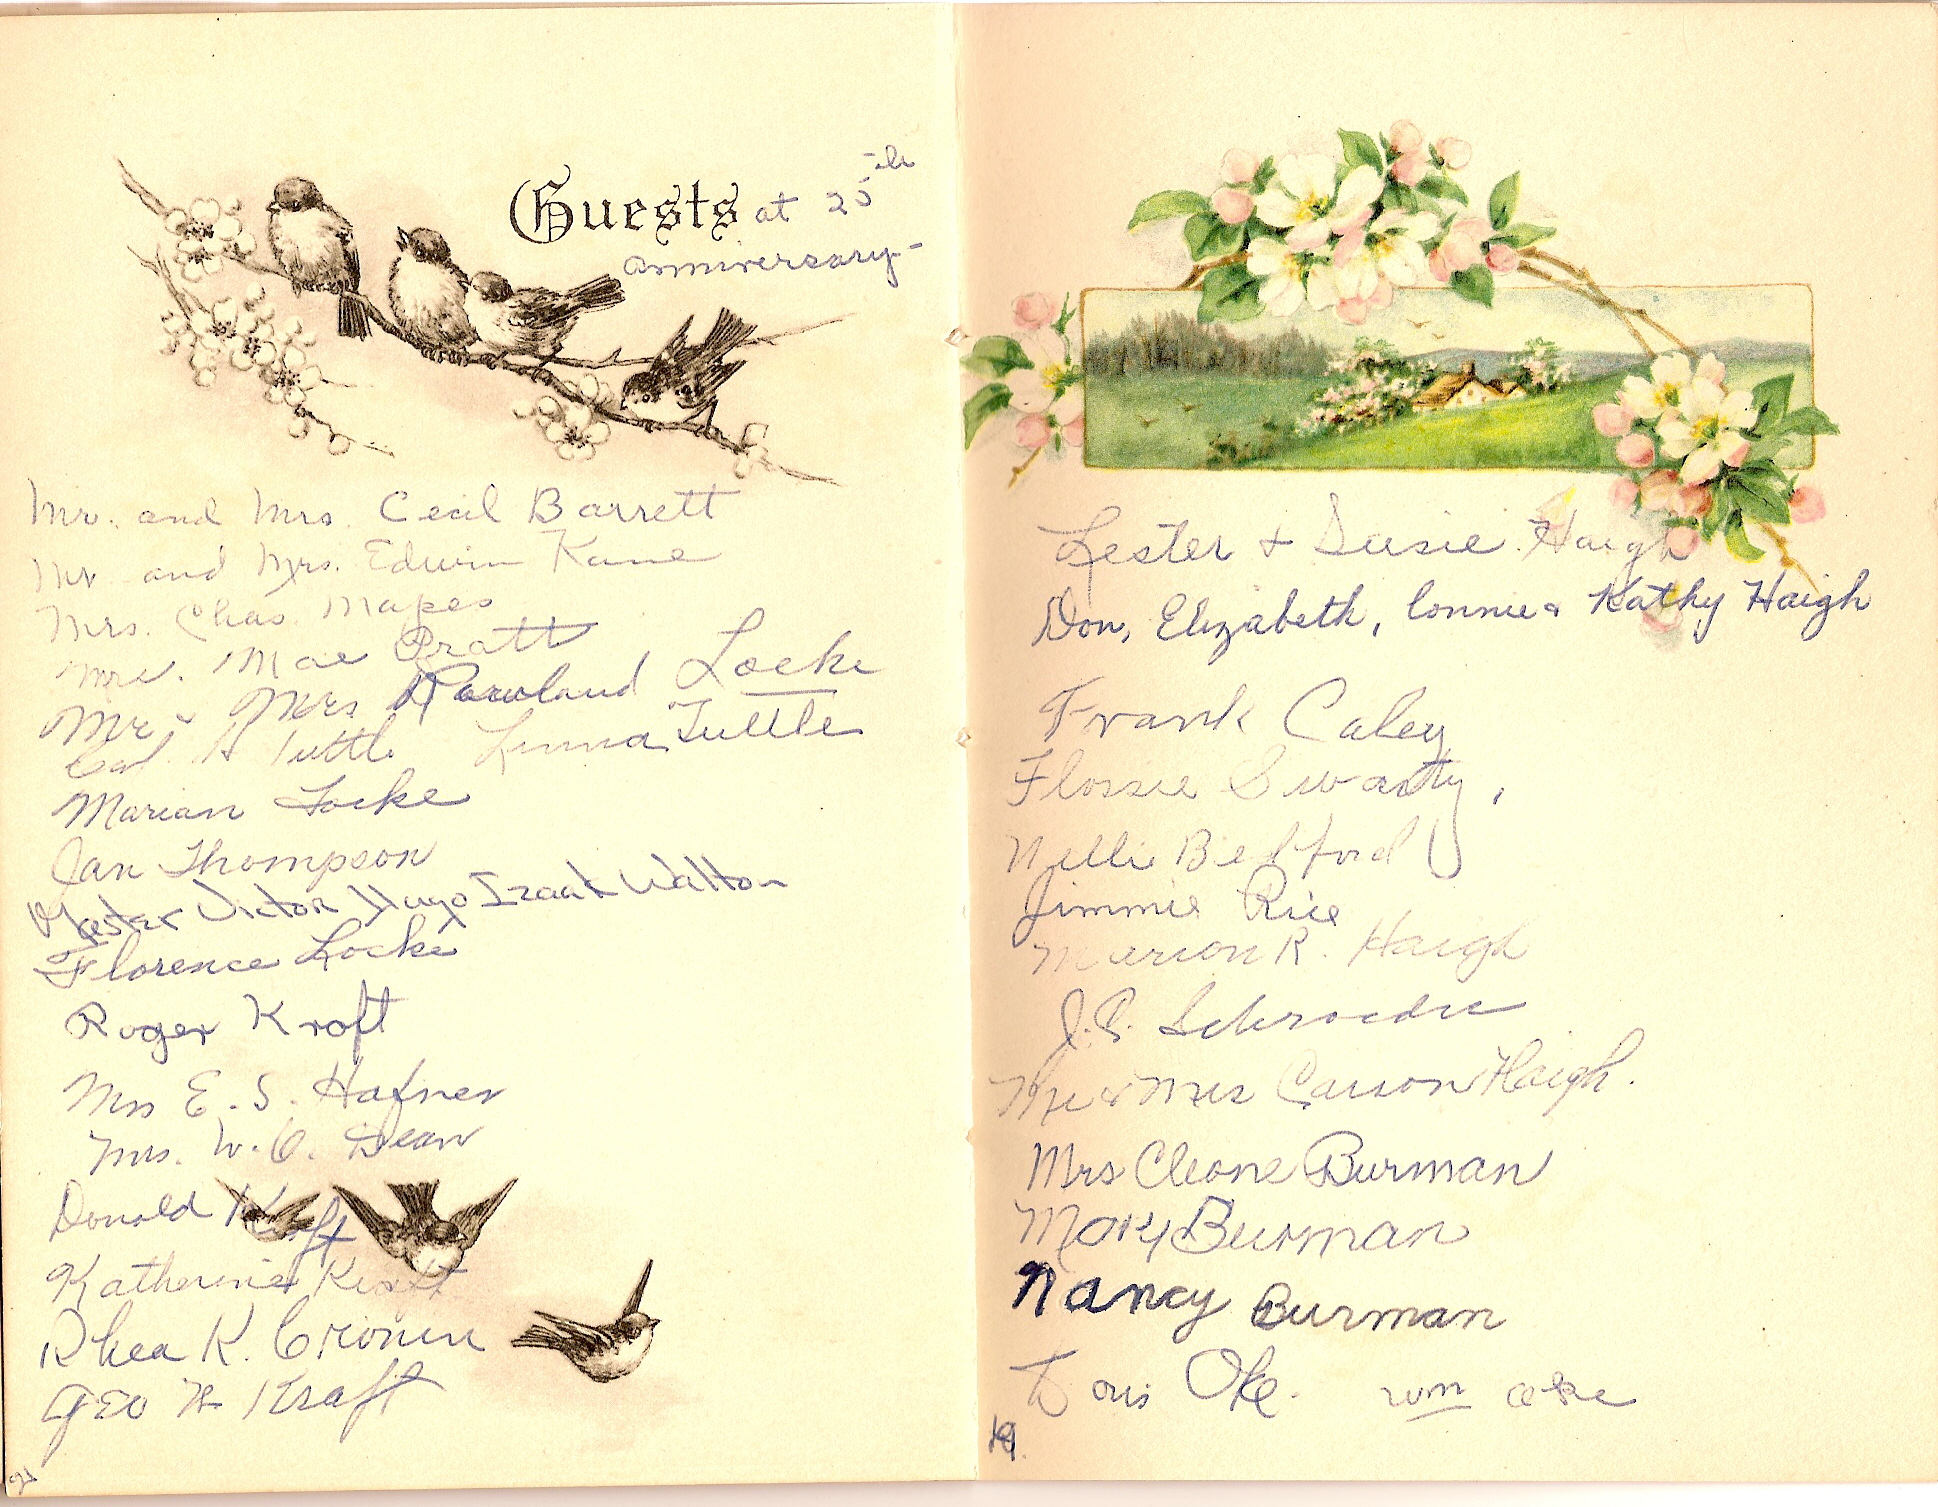 Guests at 25th
anniversary-
Mr. and Mrs. Cecil Barrett
Mr. and Mrs. Edwin Kane
Mrs. Chas. Mapes
Mrs. Mae Pratt
Mr & Mrs Rowland Locke
A Tuttle Linna Tuttle
Marian Locke
Jan Thompson
Victor Hugo Izaak Walton
Florence Locke
Roger Kroft
Mrs E. S. Hafner
Mrs. W. O. Dean
Donald Kraft
Katherine Kraft
Rhea K. Cronin
Geo H Kraft
Lester & Susie Haigh
Don, Elizabeth, Connie & Kathy Haigh
Frank Caley
Flossie Swarty,
Nellie Bedford
Jimmie Rice
Marion R. Haigh
J. P. Schroeder
Mr & Mrs Carson Haigh.
Mrs Cleone Burman
Mary Burman
Nancy Burman
Oke. wm oke